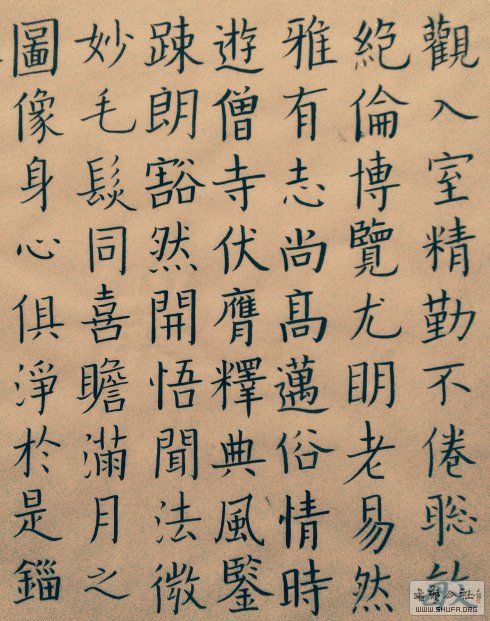 觀入室精勤不倦聡
絶倫博覽尤明老易然
雅有志尚髙邁俗情時
遊僧寺伏膺釋典風鑒
踈朗豁然開悟聞法微
妙毛髮同喜瞻滿月之
圖像身心俱淨於是錙
WWW.SHUFA.ORG